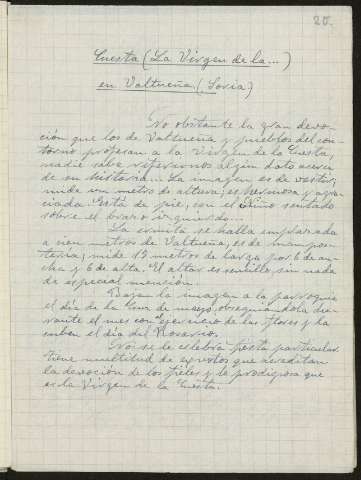 20.
Cuesta (La Virgen de la...)
en Valtueña (Soria)
No obstante la gran devo-
ción que los de Valtueña y pueblos del con-
torno profesan a la Virgen de la Cuesta,
nadie sabe referirnos algún dato acerca
de su historia... La imagen es de vestir,
mide un metro de altura; es hermosa y agra-
ciada. Está de pie, con el Niño sentado
sobre el brazo izquierdo.
La ermita se halla emplazada
a cien metros de Valtueña, es de mampos-
tería; mide 15 metros de larga por 6 de an-
cha y 6 de alta. El altar es sencillo sin nada
de especial mención.
Bajan la imagen a la parroquia
el día de la Cruz de mayo, obsequiándola du-
rante el mes con ejercicio de las Flores y la
suben el día del Rosario.
No se le celebra fiesta particular
tiene multitud de exvotos que acreditan
la devoción de los fieles y lo prodigiosa que
es la Virgen de la Cuesta.